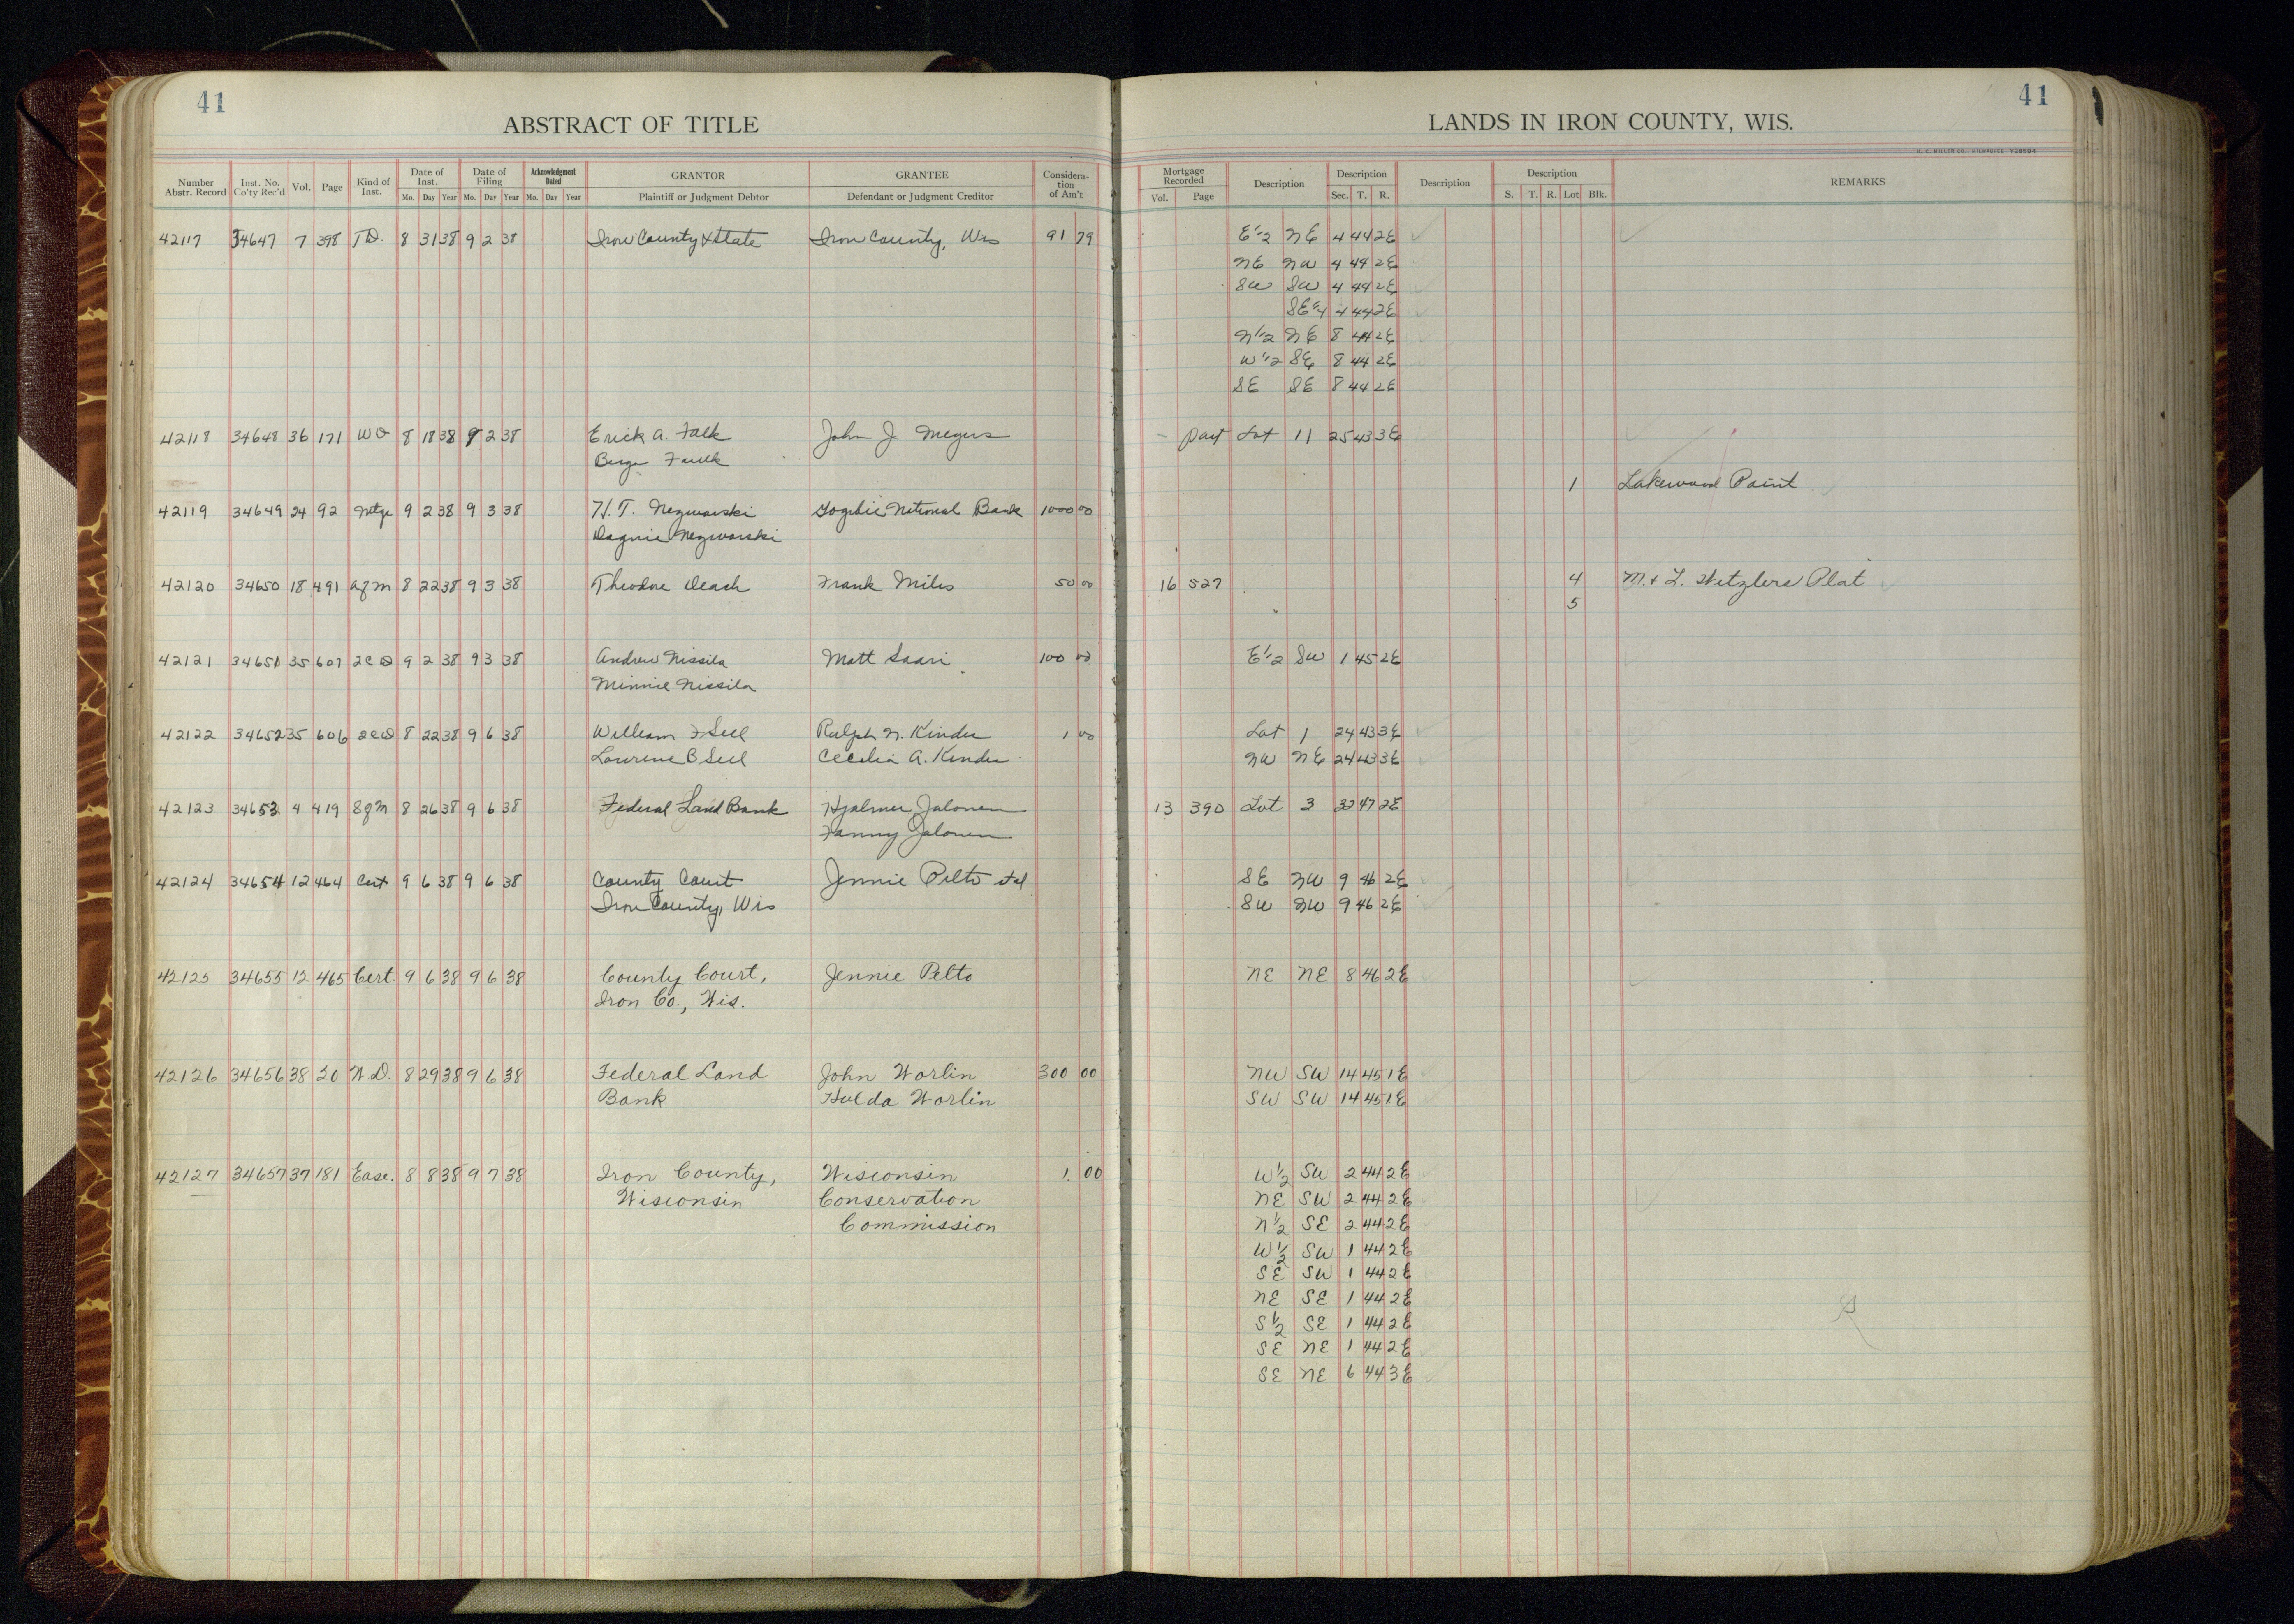 41
ABSTRACT OF TITLE
Number Abstr. Record Inst. No. Co'ty Rec'd Vol. Page Kind of Inst. Date of Inst. Mo. Day Year Date of Filing Mo. Day Year Acknowledgment Dated Mo. Day Year GRANTOR Plaintiff or Judgment Debtor GRANTEE Defendant or Judgment Creditor Consideration of Am't
42117 34647 7 398 T.D. 8 31 38 9 2 38 Iron County & State Iron County, Wis 91 79
42118 34648 36 171 WD 8 18 38 9 2 38 Erick A. Falk John J. Meyers
Faulk
42119 34649 24 92 Mtge 9 2 38 9 3 38 H.T. Nezworski Gogebic National Bank 1000 00
Dagnie Nezworski
42120 34650 18 491 A of M 8 22 38 9 3 38 Theodore Deash Frank Miles 50 00
42121 34651 35 607 2CD 9 2 38 9 3 38 Andrew Nissila Matt Saari 100 00
Minnie Nissila
42122 34652 35 606 2CD 8 22 38 9 6 38 William F Sell Ralph N. Kinder 1 00
Laurene B Sell Cecelia A. Kinder
42123 34653 4 419 S of M 8 26 38 9 6 38 Federal Land Bank Hjalmer Jalonen
Fanny Jalonen
42124 34654 12 464 Cert 9 6 38 9 6 38 County Court Jennie Pelto et al
Iron County, Wis
42125 34655 12 465 Cert. 9 6 38 9 6 38 County Court, Jennie Pelto
Iron Co., Wis.
42126 34656 38 20 W.D. 8 29 38 9 6 38 Federal Land John Worlin 300 00
Bank Hulda Worlin
42127 34657 37 181 Ease. 8 8 38 9 7 38 Iron County, Wisconsin 1. 00
Wisconsin Conservation
Commission
41
LANDS IN IRON COUNTY, WIS.
Mortgage Recorded Vol. Page Description Description Sec. T. R. Description Description S. T. R. Lot Blk. REMARKS
E 1/2 NE 4 44 2E
NE NW 4 44 2E
SW SW 4 44 2E
SE 1/4 4 44 2E
N 1/2 NE 8 44 2E
W 1/2 SE 8 44 2E
SE SE 8 44 2E
Part Lot 11 25 43 3E
1 Lakewood Point
16 527 4 M. & L. Hetzlers Plat
5
E 1/2 SW 1 45 2E
Lot 1 24 43 3E
NW NE 24 43 3E
13 390 Lot 3 32 47 2E
SE NW 9 46 2E
SW NW 9 46 2E
NE NE 8 46 2E
NW SW 14 45 1E
SW SW 14 45 1E
W 1/2 SW 2 44 2E
NE SW 2 44 2E
N 1/2 SE 2 44 2E
W 1/2 SW 1 44 2E
SE SW 1 44 2E
NE SE 1 44 2E
S 1/2 SE 1 44 2E
SE NE 1 44 2E
SE NE 6 44 3E